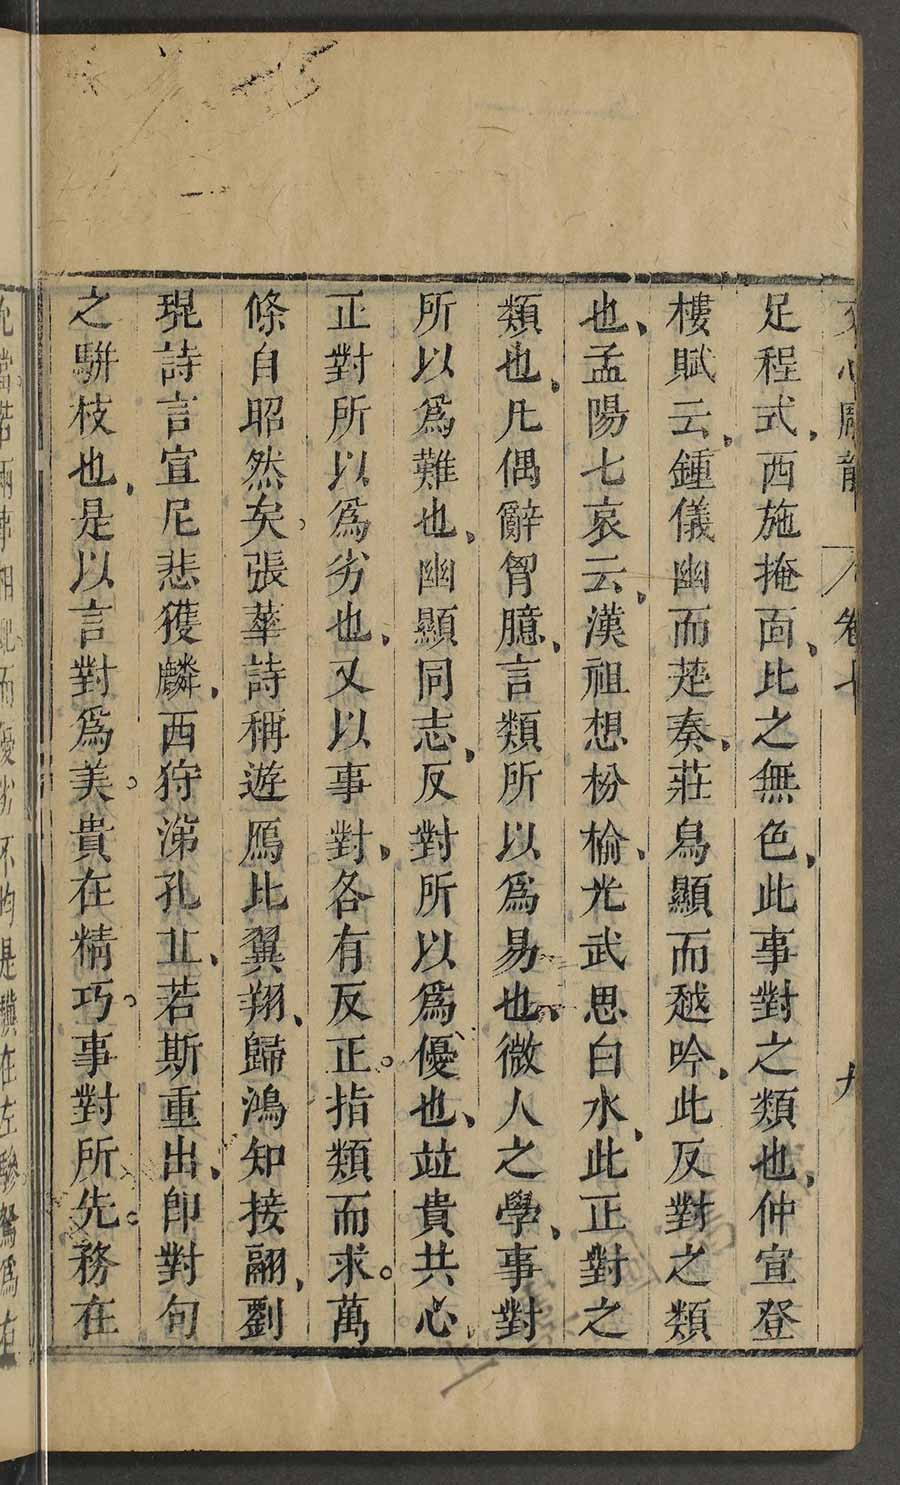 文心雕龍 卷七 九
足程式、西施掩面、比之無色、此事對之類也、仲宣登
樓賦云、鍾儀幽而楚奏、莊舄顯而越吟、此反對之類
也、孟陽七哀云、漢祖想枌榆、光武思白水、此正對之
類也、凡偶辭胷臆、言類所以爲易也、微人之學、事對
所以爲難也、幽顯同志、反對所以爲優也、竝貴共心、
正對所以爲劣也、又以事對、各有反正。指類而求。萬
條自昭然矣。張華詩稱遊鴈比翼翔、歸鴻知接翮、劉
琨詩言宣尼悲獲麟、西狩涕孔丘、若斯重出、卽對句
之駢枝也、是以言對爲美。貴在精巧。事對所先。務在
允當。若兩事相配而優劣不均是驥在左驂駑爲右